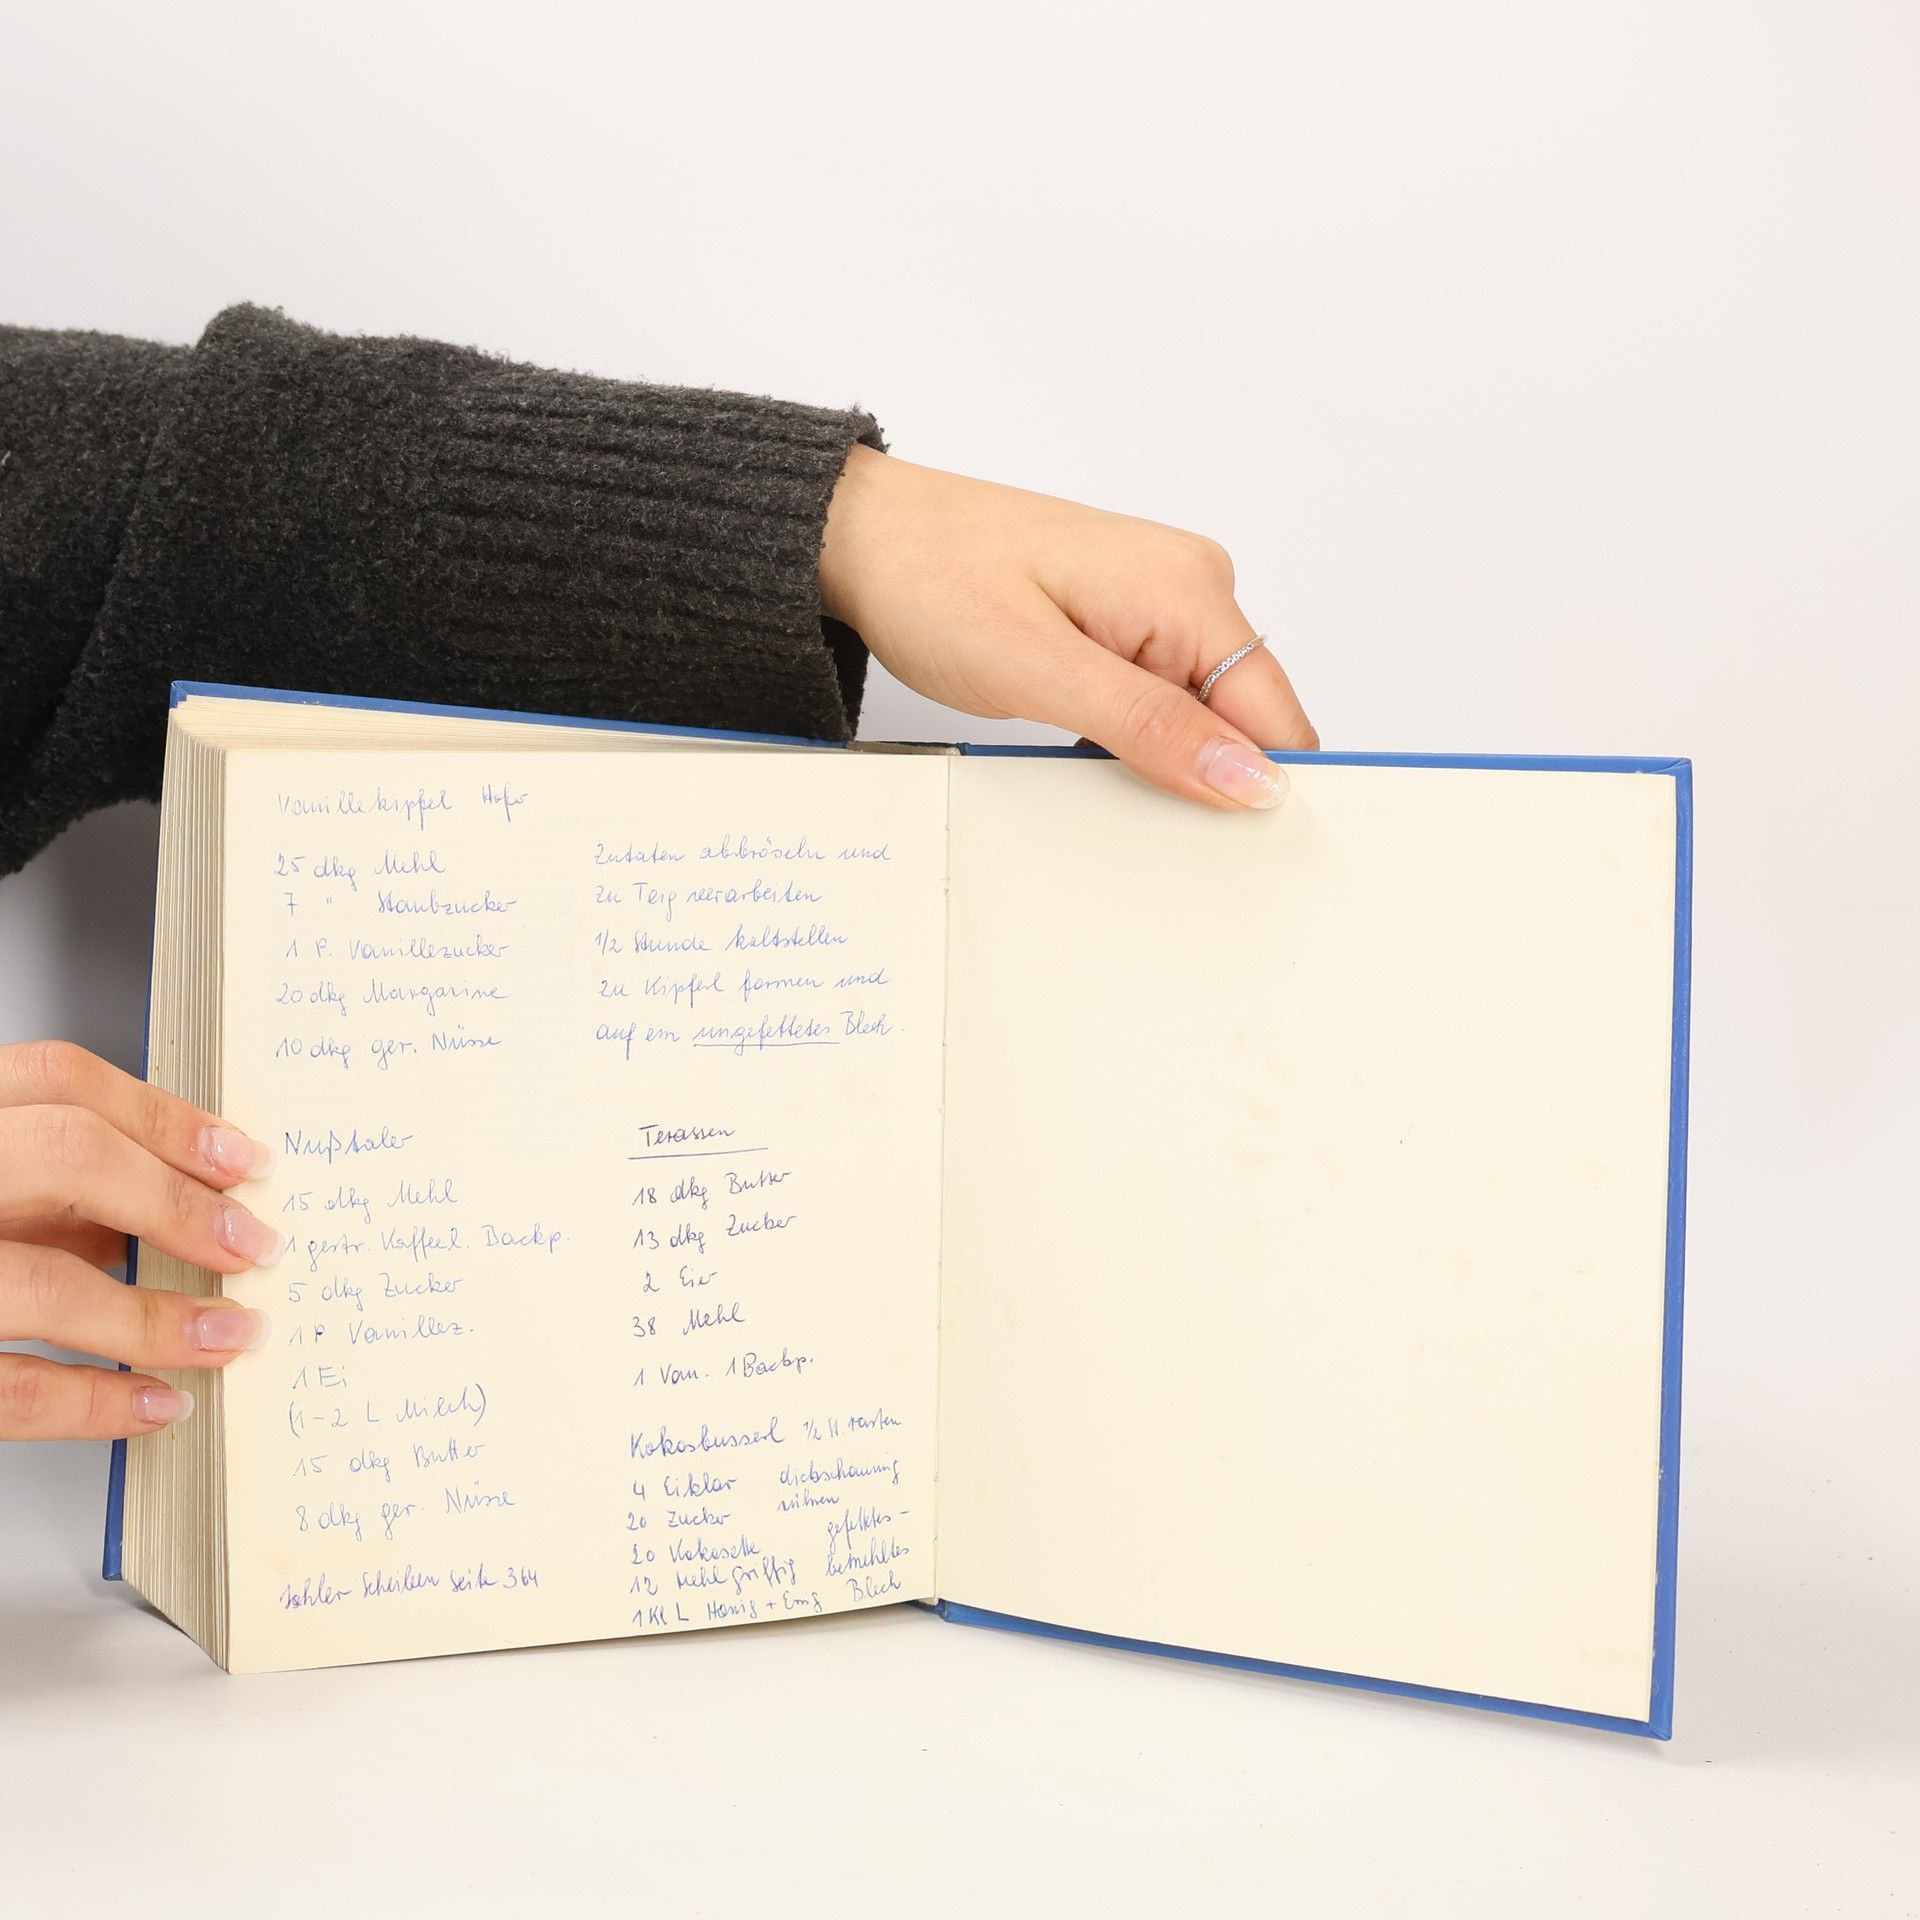 Vanillekipfel Hofer
25 dkg Mehl
7 " Staubzucker
1 P. Vanillezucker
20 dkg Margarine
10 dkg ger. Nüsse
Zutaten abbröseln und
zu Teig verarbeiten
1/2 Stunde kaltstellen
zu Kipferl formen und
auf ein ungefettetes Blech.
Nußtaler
15 dkg Mehl
1 gestr. Kaffeel. Backp.
5 dkg Zucker
1 P Vanillez.
1 Ei
(1-2 L Milch)
15 dkg Butter
8 dkg ger. Nüsse
Ischler Scheiben Seite 364
Terassen
18 dkg Butter
13 dkg Zucker
2 Eier
38 Mehl
1 Van. 1 Backp.
Kokosbusserl 1/2 St. rasten
4 Eiklar dickschaumig
rühren
20 Zucker
20 Kokosette gefettetes-
12 Mehl Griffig bemehltes
1 Kl L Honig + Essig Blech